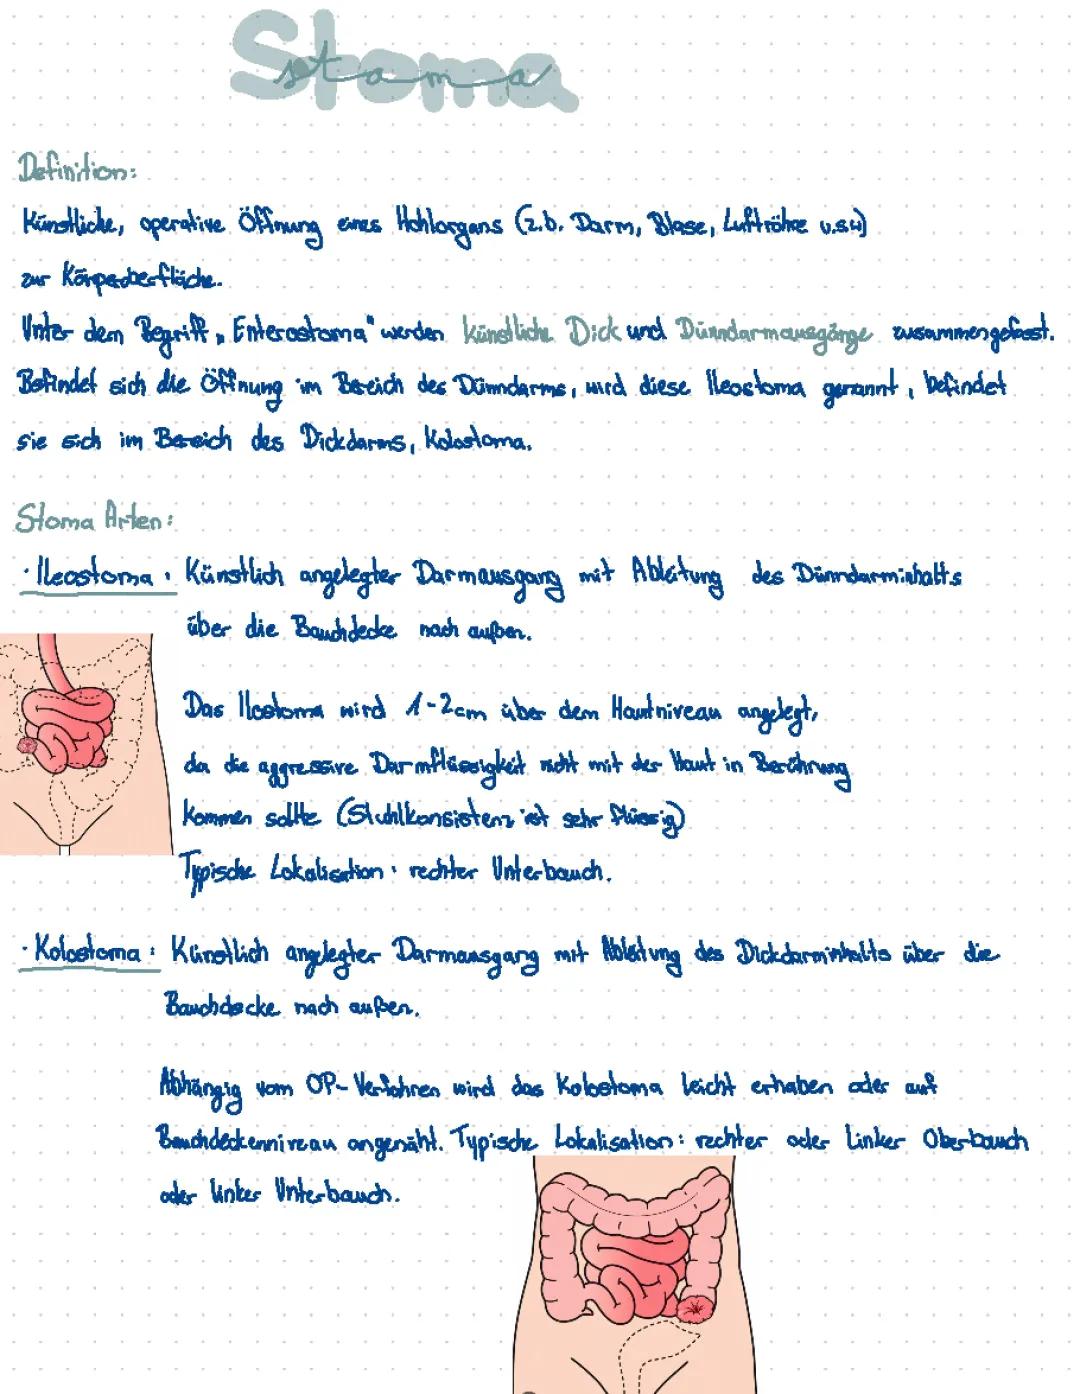 Stoma
stoma
Definition:
Künstliche, operative Öffnung eines Hohlorgans (z.b. Darm, Blase, Luftröhre u.s.w)
zur Körperoberfläche.
Unter dem Begriff „Enterostoma" werden künstliche Dick und Dünndarmausgänge zusammengefasst.
Befindet sich die Öffnung im Bereich des Dünndarms, wird diese Ileostoma genannt, befindet
sie sich im Bereich des Dickdarms, Kolostoma.
Stoma Arten:
· Ileostoma: Künstlich angelegter Darmausgang mit Ableitung des Dünndarminhalts
über die Bauchdecke nach außen.
Das Ileostoma wird 1-2cm über dem Hautniveau angelegt,
da die aggressive Darmflüssigkeit nicht mit der Haut in Berührung
kommen sollte (Stuhlkonsistenz ist sehr flüssig)
Typische Lokalisation: rechter Unterbauch.
· Kolostoma: Künstlich angelegter Darmausgang mit Ableitung des Dickdarminhalts über die
Bauchdecke nach außen.
Abhängig vom OP-Verfahren wird das Kolostoma leicht erhaben oder auf
Bauchdeckenniveau angenäht. Typische Lokalisation: rechter oder linker Oberbauch
oder linker Unterbauch.